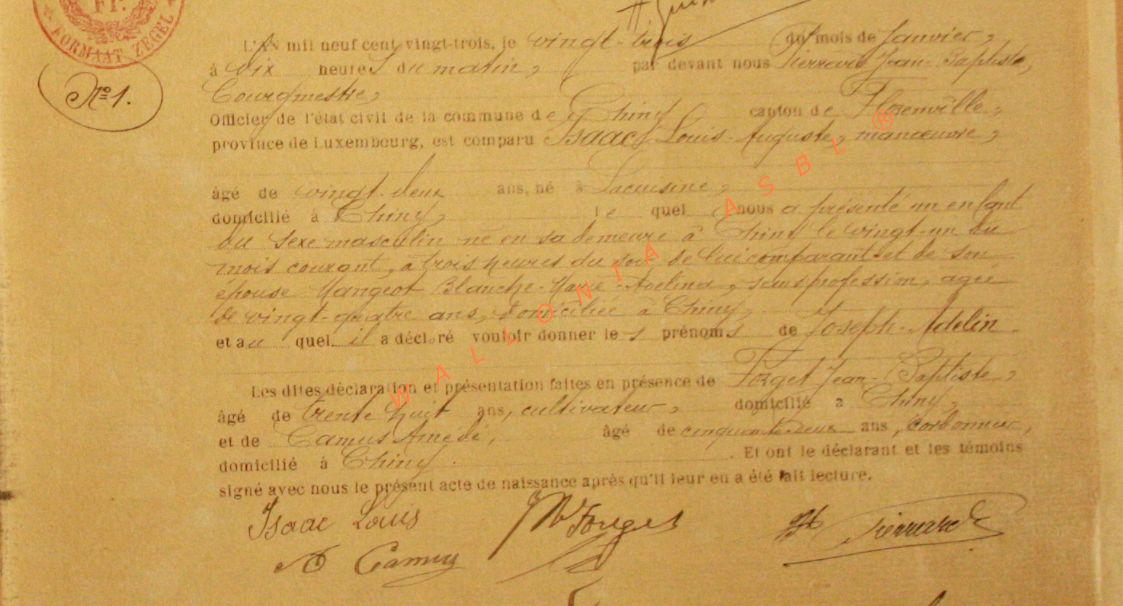 FORMAAT ZEGEL
FR.
L'AN mil neuf cent vingt-trois, le vingt-trois du mois de Janvier,
à dix heures du matin, par devant nous Pierrard Jean-Baptiste,
Bourgmestre,
Nº 1.
Officier de l'état civil de la commune de Chiny canton de Florenville,
province de Luxembourg, est comparu Isaac, Louis-Auguste, manœuvre,
âgé de vingt-deux ans, né à Lacuisine,
domicilié à Chiny, lequel nous a présenté un enfant
du sexe masculin né en sa demeure à Chiny le vingt-un du
mois courant, à trois heures du soir de lui comparant et de son
épouse Mangeot Blanche-Marie-Adelina, sans profession, agée
de vingt-quatre ans, domiciliée à Chiny,
et auquel il a déclaré vouloir donner les prénoms de Joseph-Adelin.
Les dites déclaration et présentation faites en présence de Forget Jean-Baptiste,
âgé de trente huit ans, cultivateur, domicilié à Chiny,
et de Camus Amédé, âgé de cinquante deux ans, cordonnier,
domicilié à Chiny. Et ont le déclarant et les témoins
signé avec nous le présent acte de naissance après qu'il leur en a été fait lecture.
Isaac Louis
JB Forget
Pierrard
A Camus
WALLONIA ASBL ®